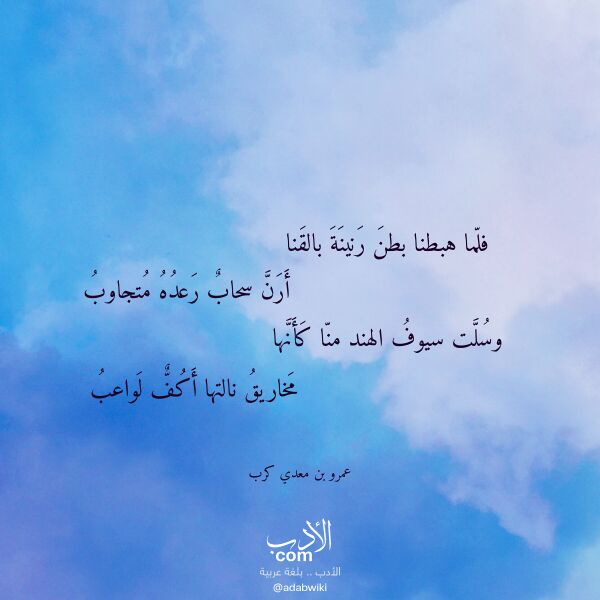 فلّما هبطنا بطنَ رَنينَةَ بالقَنا
أَرَنَّ سحابٌ رَعدُهُ مُتجاوبُ
وسُلَّت سيوفُ الهند منّا كَأَنَّها
مَخاريقُ نالتها أَكُفٌّ لَواعبُ
عمرو بن معدي كرب
الأدب
com
الأدب .. بلغة عربية
@adabwiki